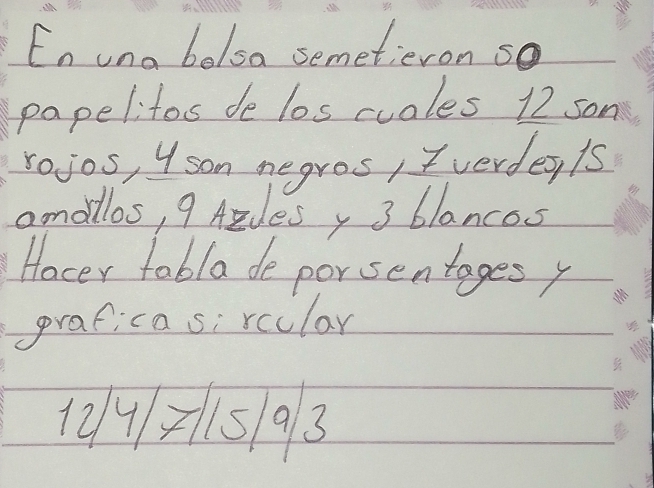 En una bolsa semetieron 50
papelitos de los cuales 12 son
rojos, 4 son negros, 7 verdes, 15
amarillos, 9 Azules y 3 blancos
Hacer tabla de porsentages y
grafica sircular
12/4/7/15/9/3